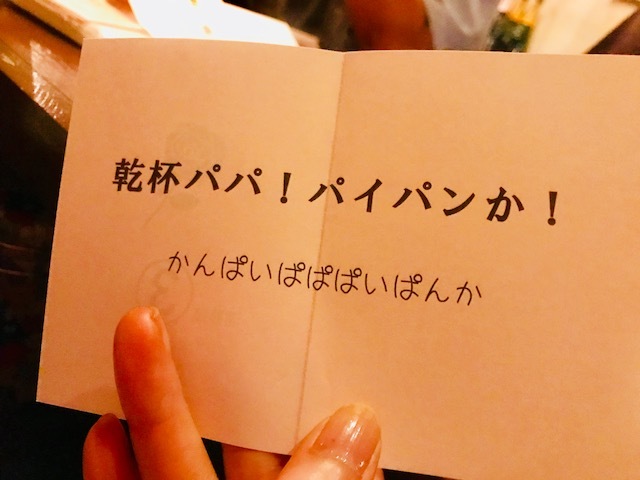 乾杯パパ！パイパンか！
かんぱいぱぱぱいぱんか